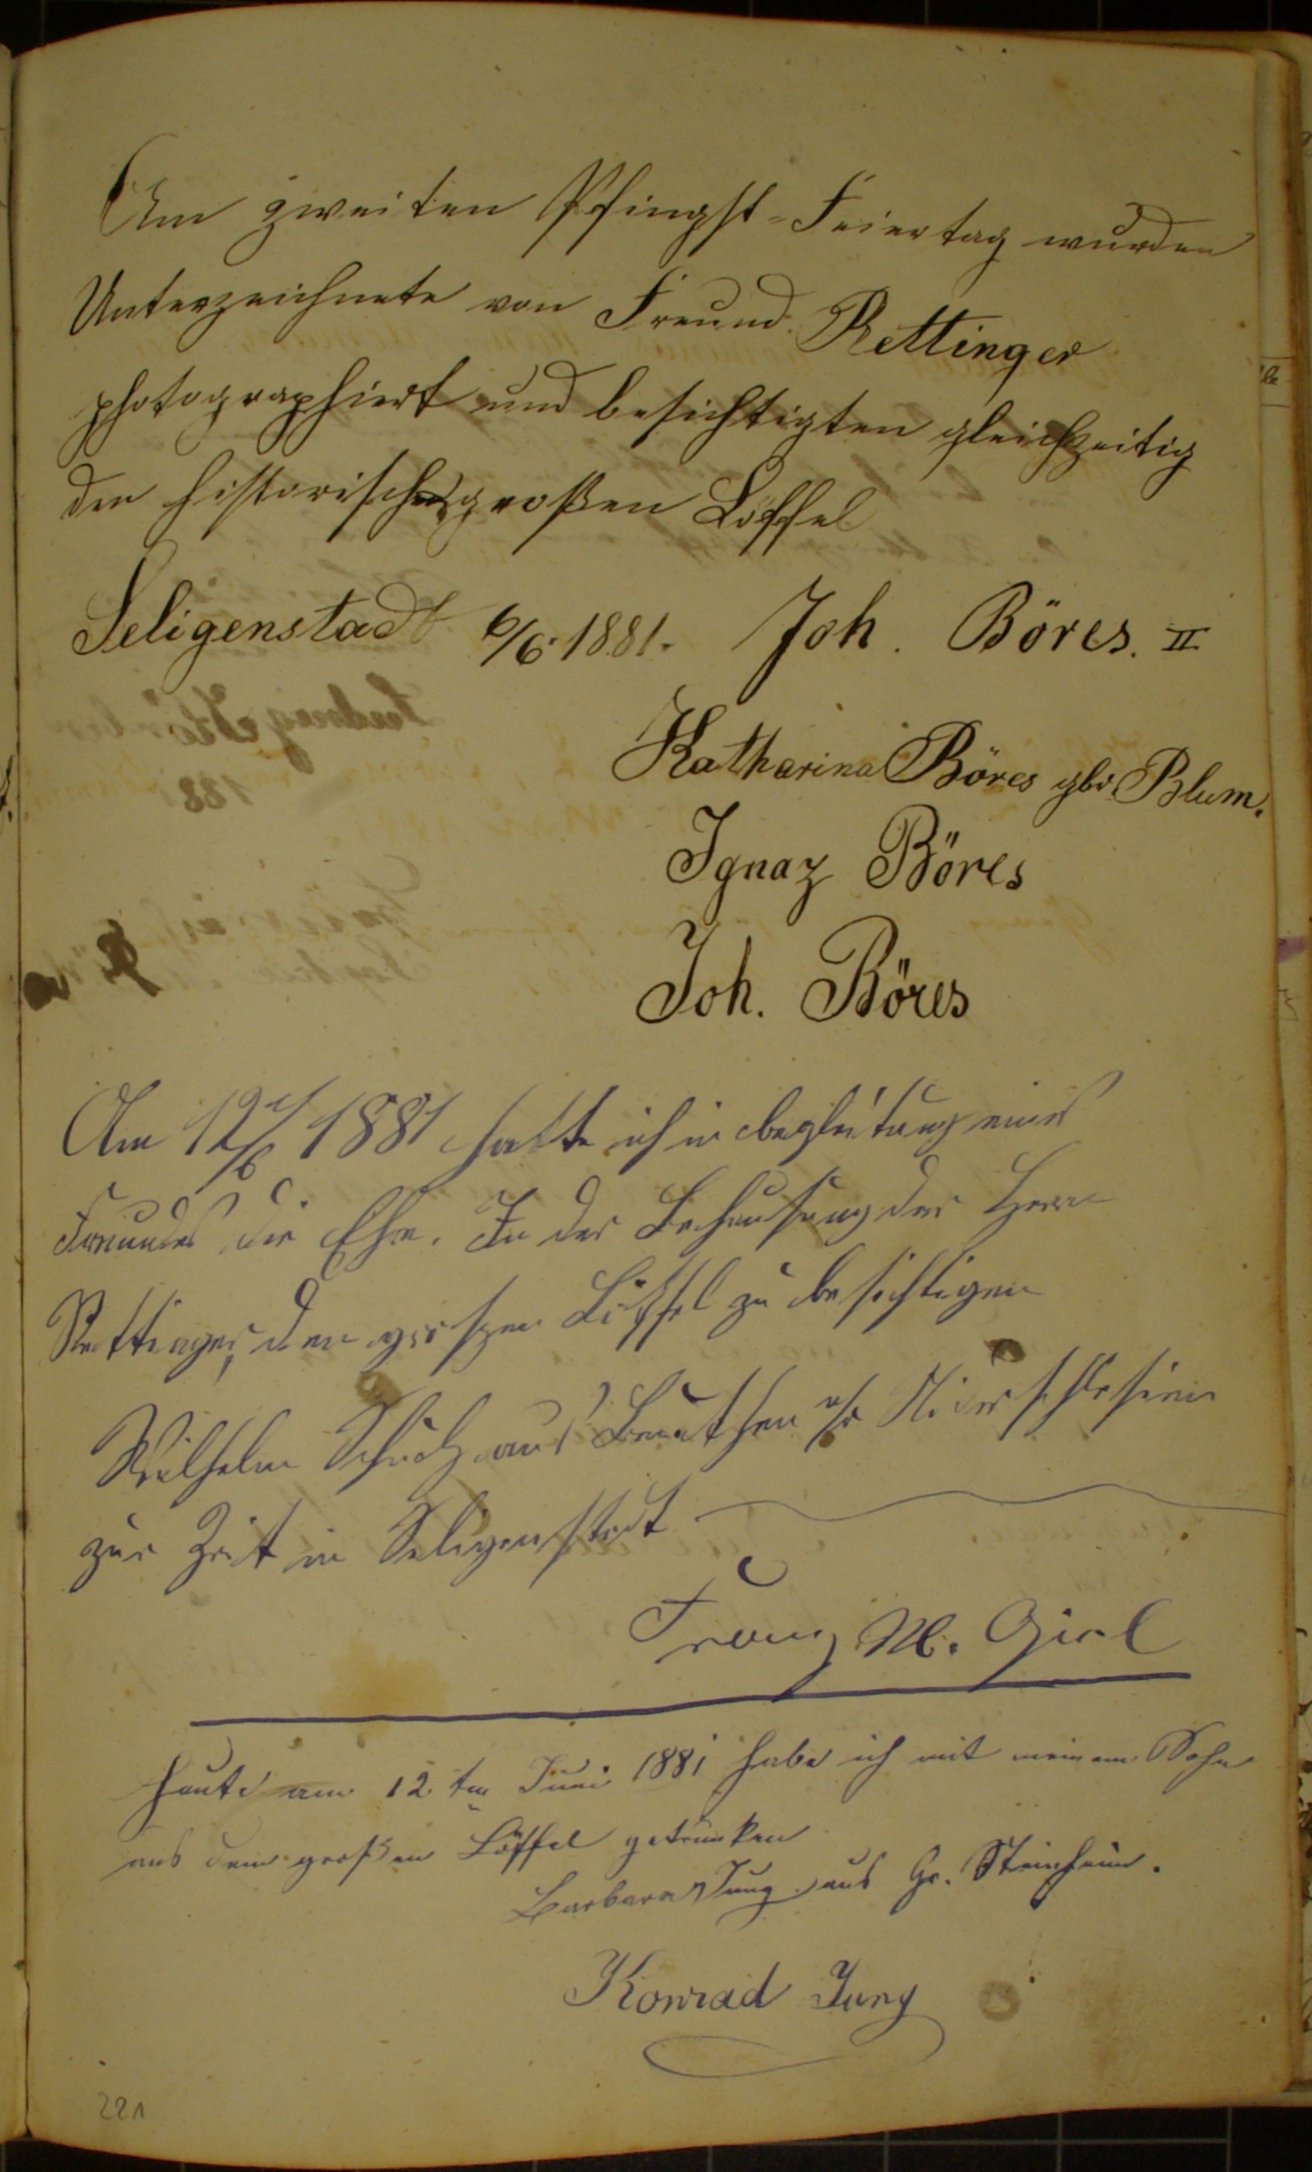 Am zweiten Pfingst-Feiertag wurden
Unterzeichnete von Freund Rettinger
photographiert und besichtigten gleichzeitig
den historischen großen Löffel
Seligenstadt 6/6. 1881. Joh. Böres. II
Katharina Böres gbr. Blum.
Ignaz Böres
Joh. Böres
Am 12/6 1881 hatte ich in begleitung eines
Freundes die Ehre. In der Behausung des Herrn
Rettinger, den grossen Löffel zu besichtigen
Wilhelm Scholz aus Beuthen a/o Niederschlesien
zur Zeit in Seligenstadt
Franz M. Girl
Heute am 12ten Juni 1881 habe ich mit meinem Sohn
aus dem großen Löffel getrunken
Barbara Jung aus Gr. Steinheim.
Konrad Jung
221